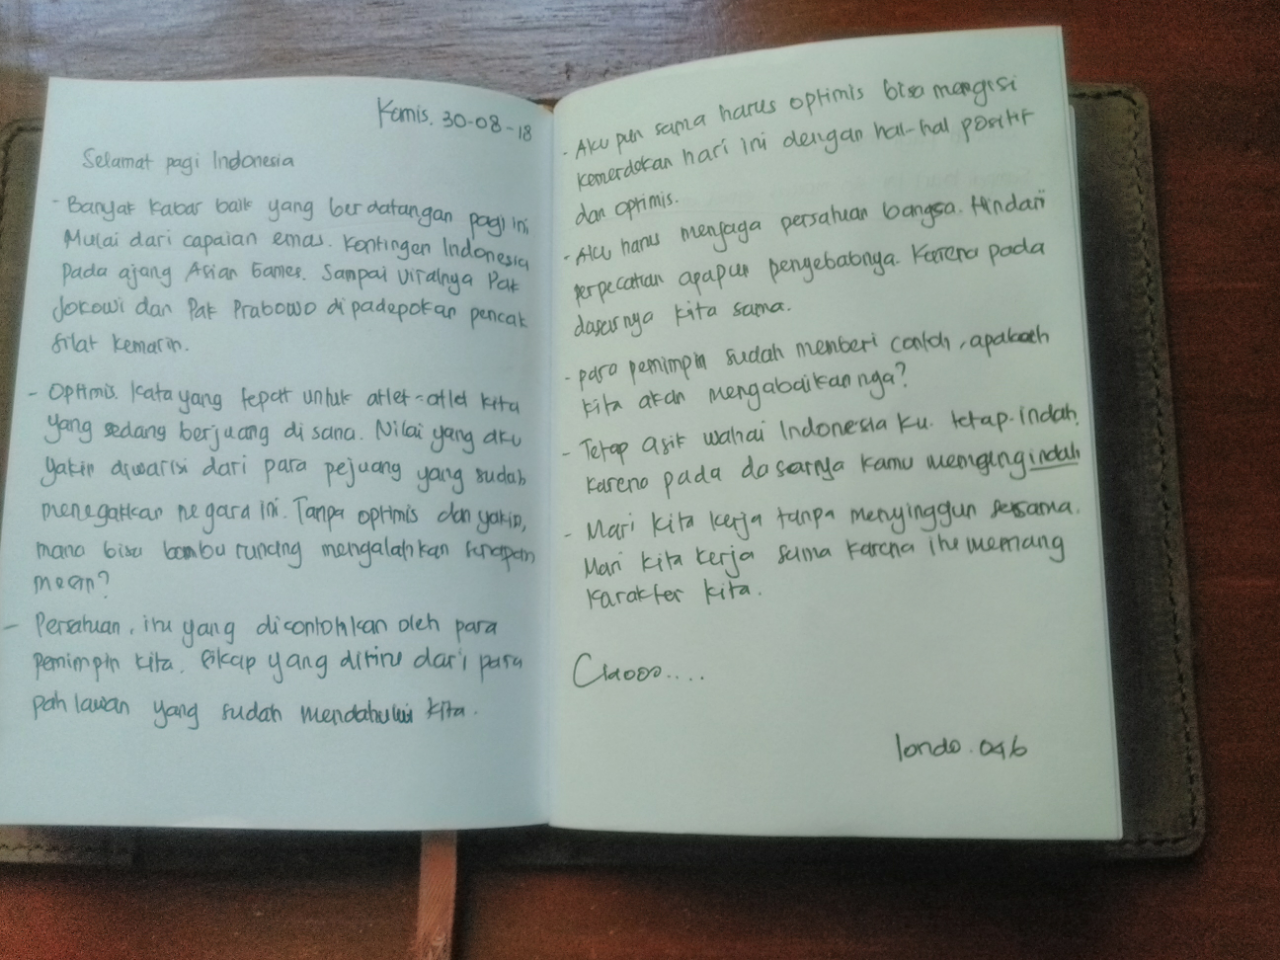 Kamis. 30-08-18
Selamat pagi Indonesia
- Banyak kabar baik yang berdatangan pagi ini
Mulai dari capaian emas. Kontingen Indonesia
pada ajang Asian Games. Sampai viralnya Pak
Jokowi dan Pak Prabowo di padepokan pencak
silat kemarin.
- Optimis. Kata yang tepat untuk atlet-atlet kita
yang sedang berjuang di sana. Nilai yang aku
yakin diwarisi dari para pejuang yang sudah
menegakkan negara ini. Tanpa optimis dan yakin,
mana bisa bambu runcing mengalahkan senapan
mesin?
- Persatuan, itu yang dicontohkan oleh para
pemimpin kita. Sikap yang ditiru dari para
pahlawan yang sudah mendahului kita.
- Aku pun sama harus optimis bisa mengisi
kemerdekaan hari ini dengan hal-hal positif
dan optimis.
- Aku harus menjaga persatuan bangsa. Hindari
perpecahan apapun penyebabnya. Karena pada
dasarnya kita sama.
- para pemimpin sudah memberi contoh, apakah
kita akan mengabaikannya?
- Tetap asik wahai Indonesia ku. tetap indah
karena pada dasarnya kamu memang indah
- Mari kita kerja tanpa menyinggun sesama.
Mari kita kerja sama karena itu memang
karakter kita.
Ciaooo....
londo.046